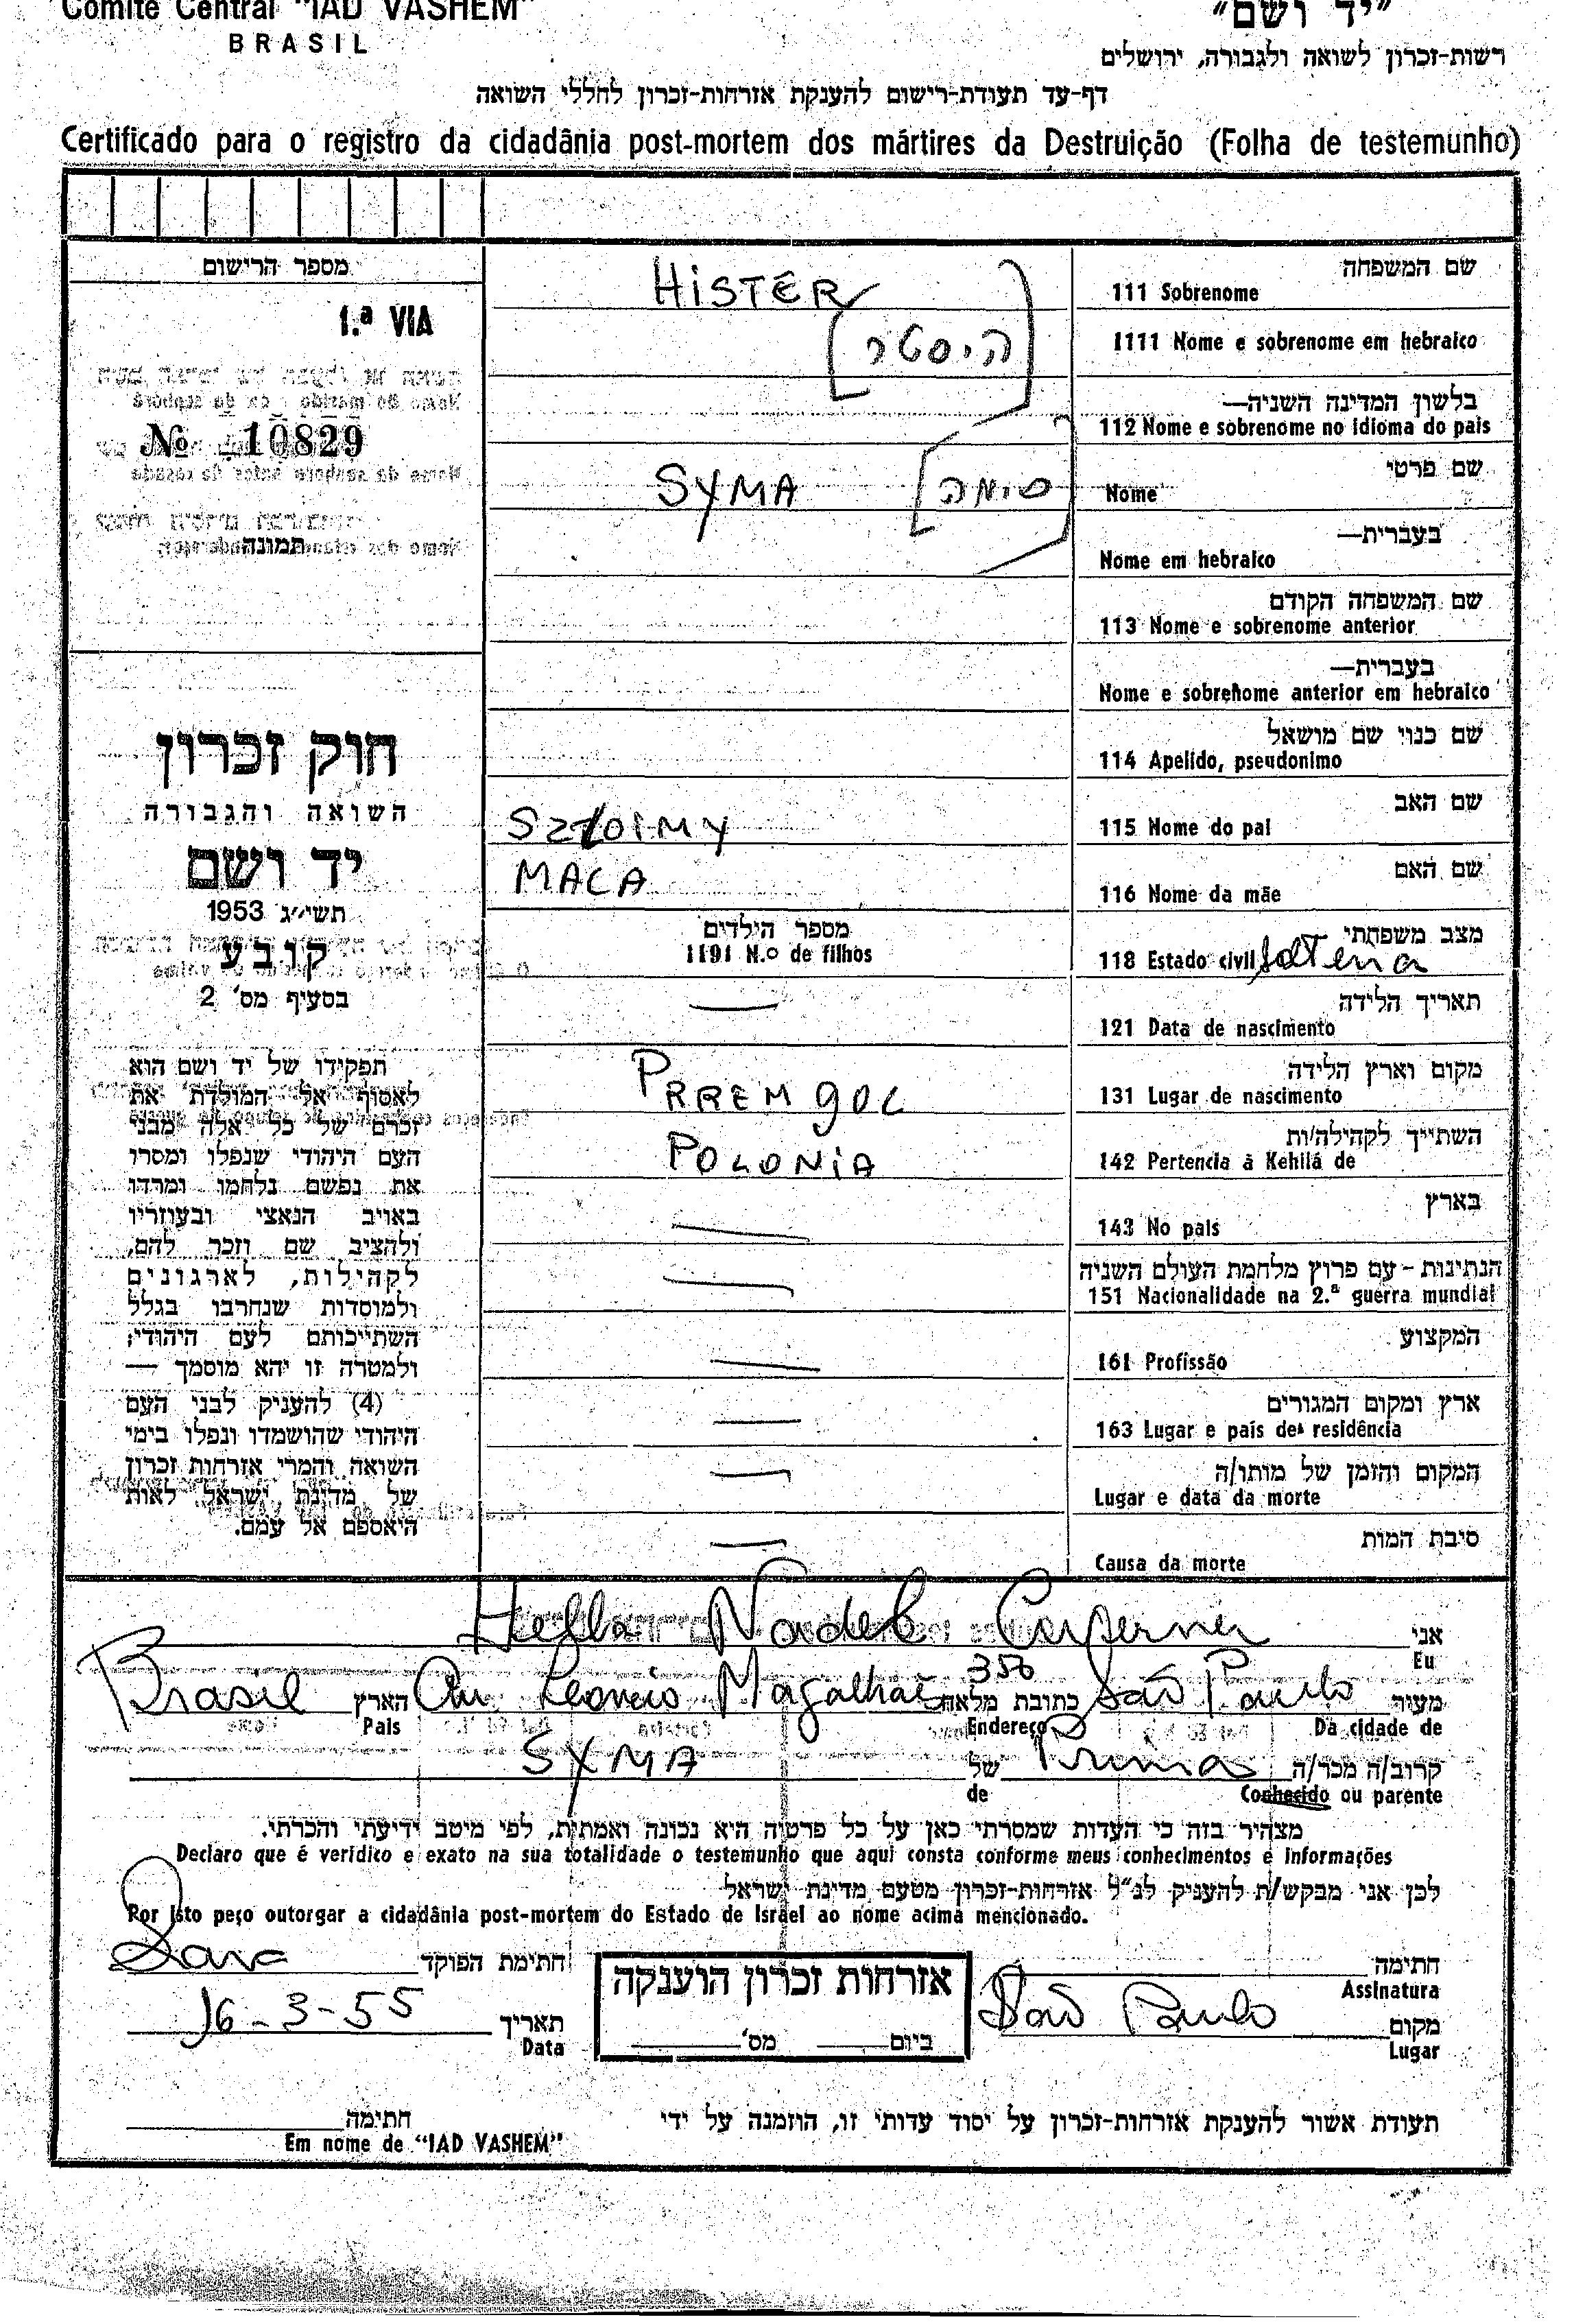 Comité Central "IAD VASHEM"
BRASIL
"יד ושם"
רשות-זכרון לשואה ולגבורה, ירושלים
דף-עד תעודת-רישום להענקת אזרחות-זכרון לחללי השואה
Certificado para o registro da cidadânia post-mortem dos mártires da Destruição (Folha de testemunho)
מספר הרישום
1.ª VIA
№ 10829
תמונה
חוק זכרון
השואה והגבורה
יד ושם
תשי"ג 1953
קובע
בסעיף מס' 2
תפקידו של יד ושם הוא
לאסוף אל המולדת את
זכרם של כל אלה מבני
העם היהודי שנפלו ומסרו
את נפשם נלחמו ומרדו
באויב הנאצי ובעוזריו
ולהציב שם וזכר להם,
לקהילות, לארגונים
ולמוסדות שנחרבו בגלל
השתייכותם לעם היהודי;
ולמטרה זו יהא מוסמך —
(4) להעניק לבני העם
היהודי שהושמדו ונפלו בימי
השואה והמרי אזרחות זכרון
של מדינת ישראל לאות
היאספם אל עמם.
שם המשפחה
111 Sobrenome HiSTER
1111 Nome e sobrenome em hebraico [היסטר]
בלשון המדינה השניה—
112 Nome e sobrenome no idioma do pais
שם פרטי
Nome SYMA [סימה]
בעברית—
Nome em hebraico
שם המשפחה הקודם
113 Nome e sobrenome anterior
בעברית—
Nome e sobrenome anterior em hebraico
שם כנוי שם מושאל
114 Apelido, pseudonimo
שם האב
115 Nome do pai SZLOIMY
שם האם
116 Nome da mãe MALA
מצב משפחתי
118 Estado civil Solteria
מספר הילדים
1191 N.o de filhos
תאריך הלידה
121 Data de nascimento
מקום וארץ הלידה
131 Lugar de nascimento PRREMGOL
השתייך לקהילה/ות
142 Pertencia à Kehilá de POLONiA
בארץ
143 No pais
הנתינות - עם פרוץ מלחמת העולם השניה
151 Nacionalidade na 2.ª guerra mundial
המקצוע
161 Profissão
ארץ ומקום המגורים
163 Lugar e pais de residência
המקום והזמן של מותו/ה
Lugar e data da morte
סיבת המות
Causa da morte
אני
Eu Hella Nadel
מעיר
Da cidade de São Paulo
כתובת מלאה
Endereço Magalhães 356
הארץ
Pais Brasil
קרוב/ה מכר/ה
Conhecido ou parente Prima
של
de SYMA
מצהיר בזה כי העדות שמסרתי כאן על כל פרטיה היא נכונה ואמתית, לפי מיטב ידיעתי והכרתי.
Declaro que é veridico e exato na sua totalidade o testemunho que aqui consta conforme meus conhecimentos e informações
לכן אני מבקש/ת להעניק לנ"ל אזרחות-זכרון מטעם מדינת ישראל
Por isto peço outorgar a cidadânia post-mortem do Estado de Israel ao nome acima mencionado.
חתימה
Assinatura
חתימת הפוקד
אזרחות זכרון הוענקה
ביום מס'
מקום
Lugar São Paulo
תאריך
Data 16-3-55
תעודת אשור להענקת אזרחות-זכרון על יסוד עדותי זו, הוזמנה על ידי
חתימה
Em nome de "IAD VASHEM"